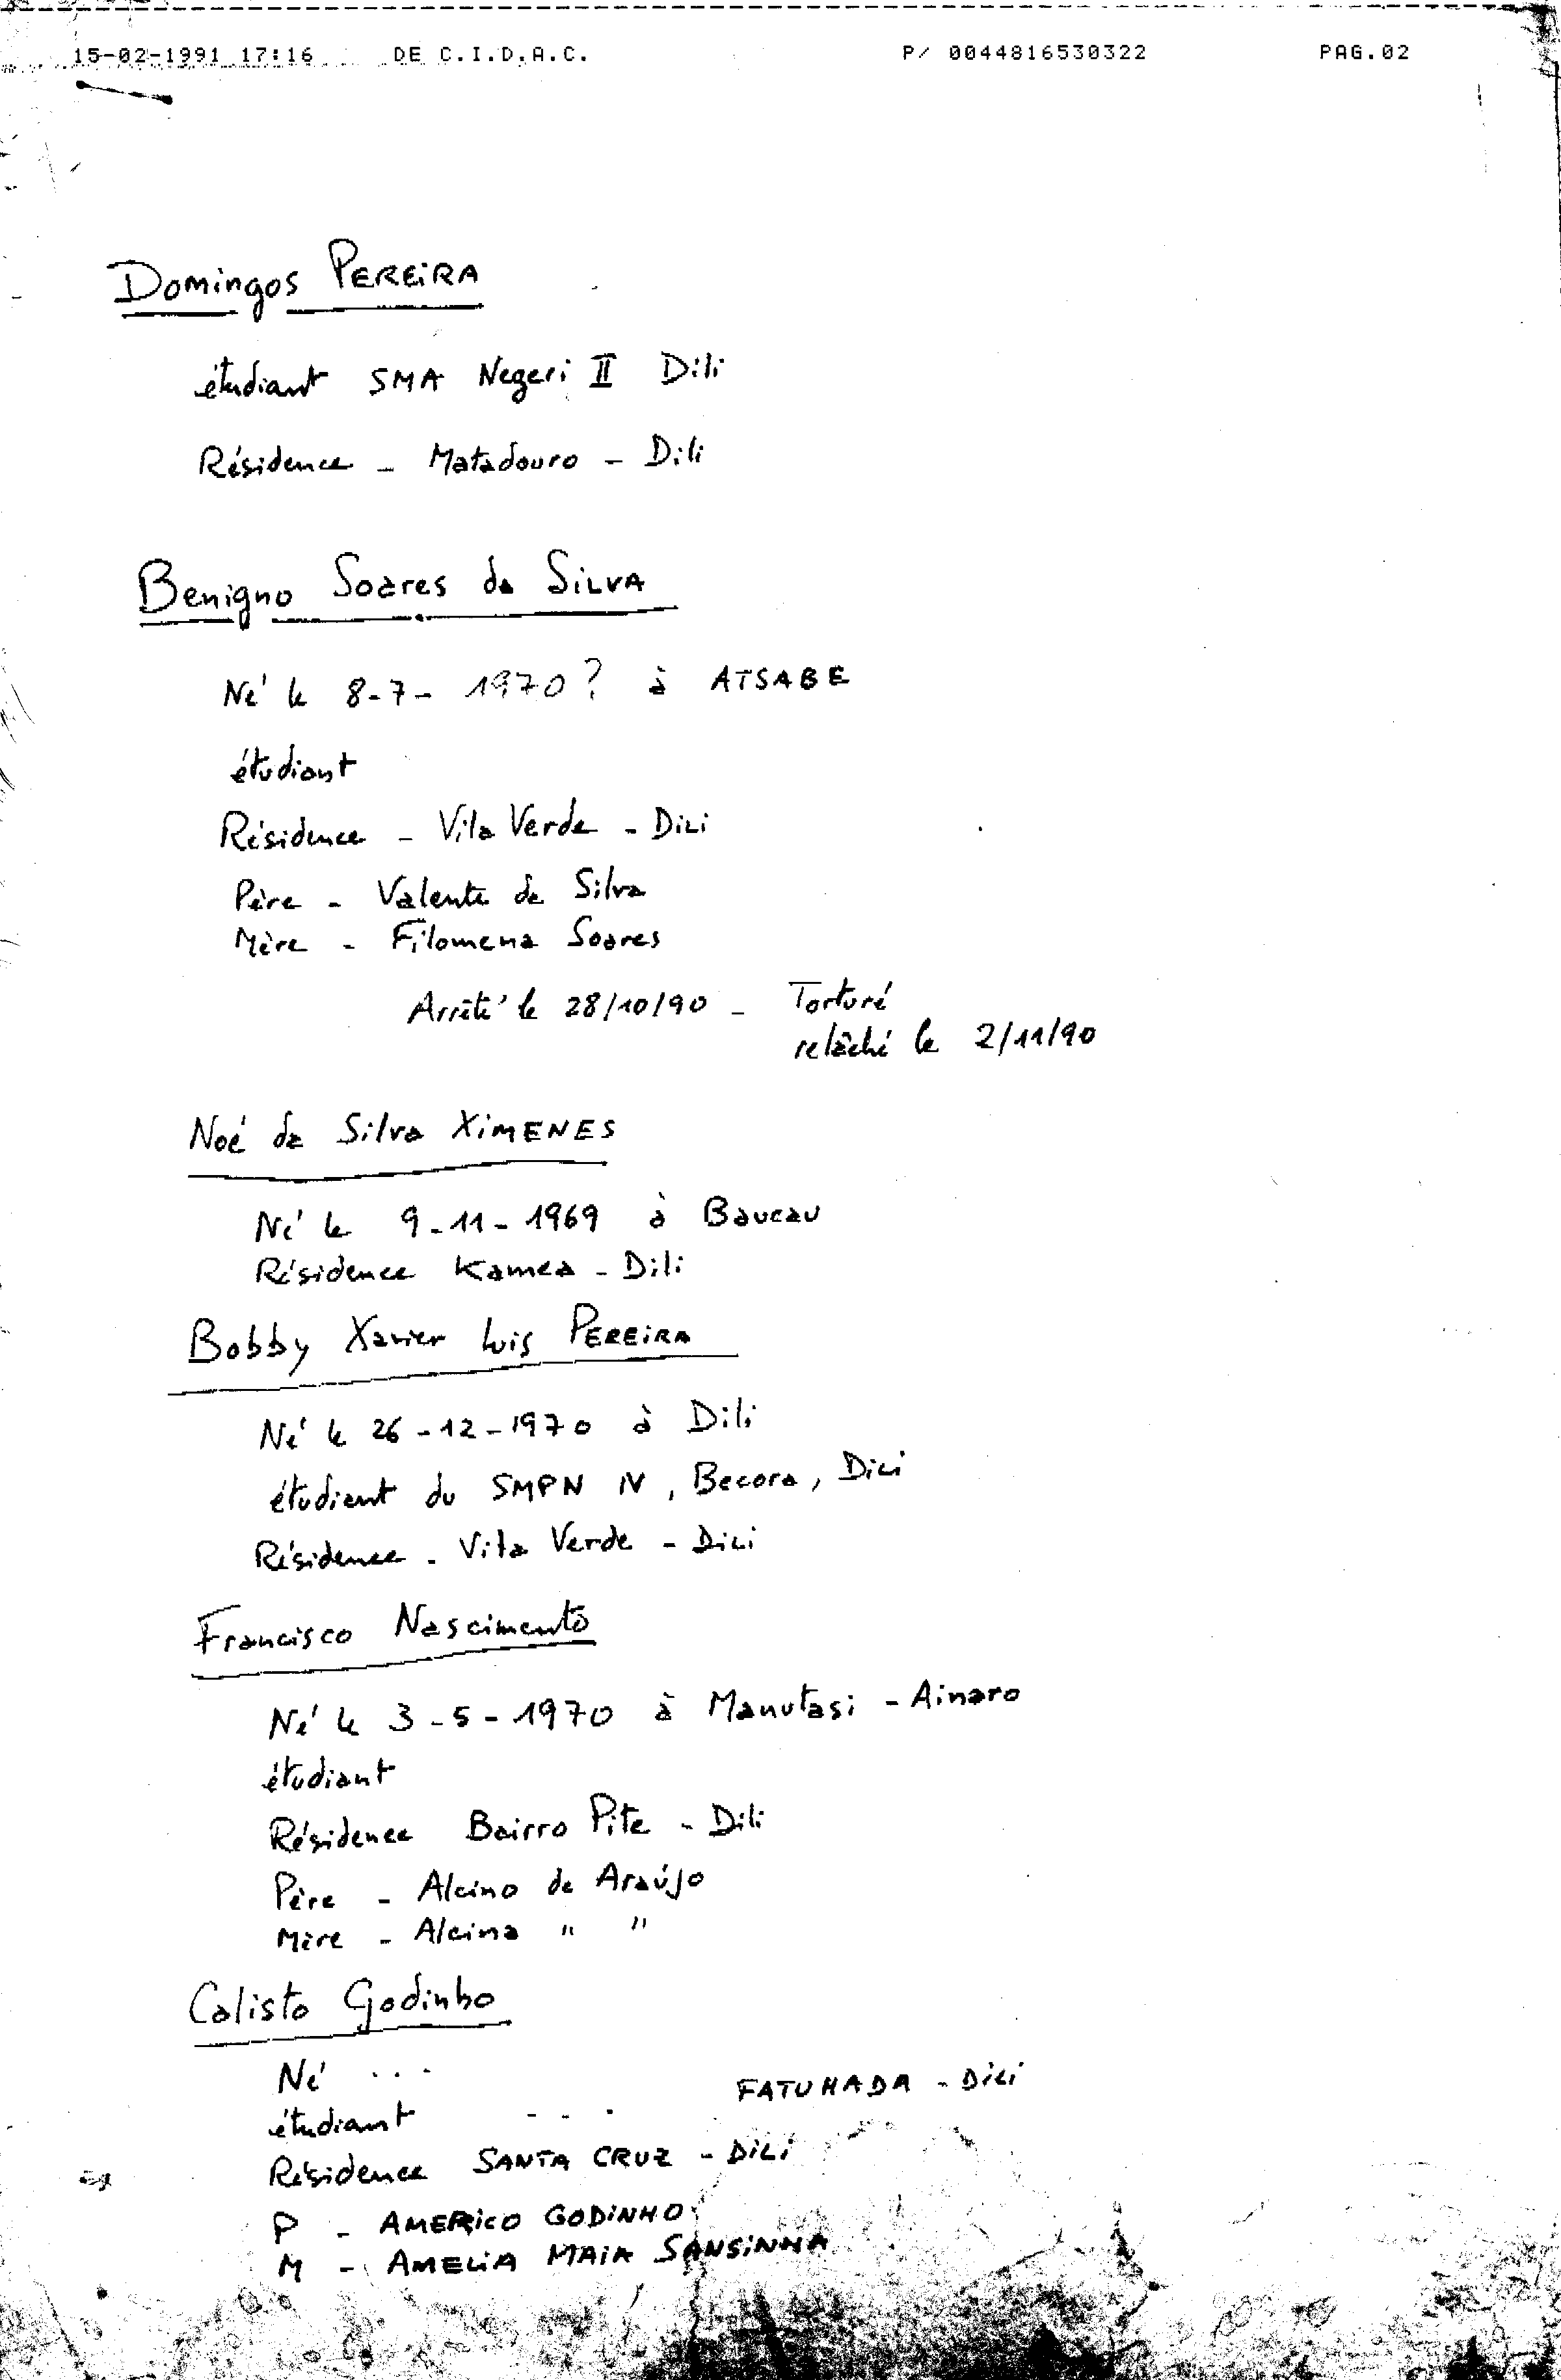 15-02-1991 17:16 DE C.I.D.A.C. P/ 0044816530322 PAG.02
Domingos PEREiRA
étudiant SMA Negeri II Dili
Résidence - Matadouro - Dili
Benigno Soares da SiLVA
Né le 8-7- 1970? à ATSABE
étudiant
Résidence - Vila Verde - Dili
Père - Valente da Silva
Mère - Filomena Soares
Arrêté le 28/10/90 - Torturé
relâché le 2/11/90
Noé da Silva XiMENES
Né le 9-11-1969 à Baucau
Résidence Kamea - Dili
Bobby Xavier Luis PEREiRA
Né le 26-12-1970 à Dili
étudiant du SMPN IV, Becora, Dili
Résidence - Vila Verde - Dili
Francisco Nascimento
Né le 3-5-1970 à Manutasi - Ainaro
étudiant
Résidence Bairro Pite - Dili
Père - Alcino de Araújo
Mère - Alcina " "
Calisto Godinho
Né ...
étudiant ... FATUHADA - Dili
Résidence SANTA CRUZ - DiLi
P - AMERiCO GODiNHO
M - AMELiA MAiA SANSiNHA